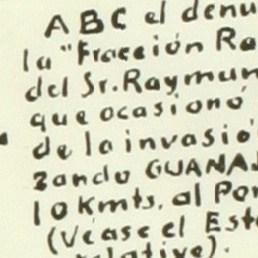 ABC el denu
la "Fracción Ra
del Sr. Raymun
que ocasionó
de la invasió
zando GUANAJ
10 Kmts. al Pon
(Véase el Est
relative).